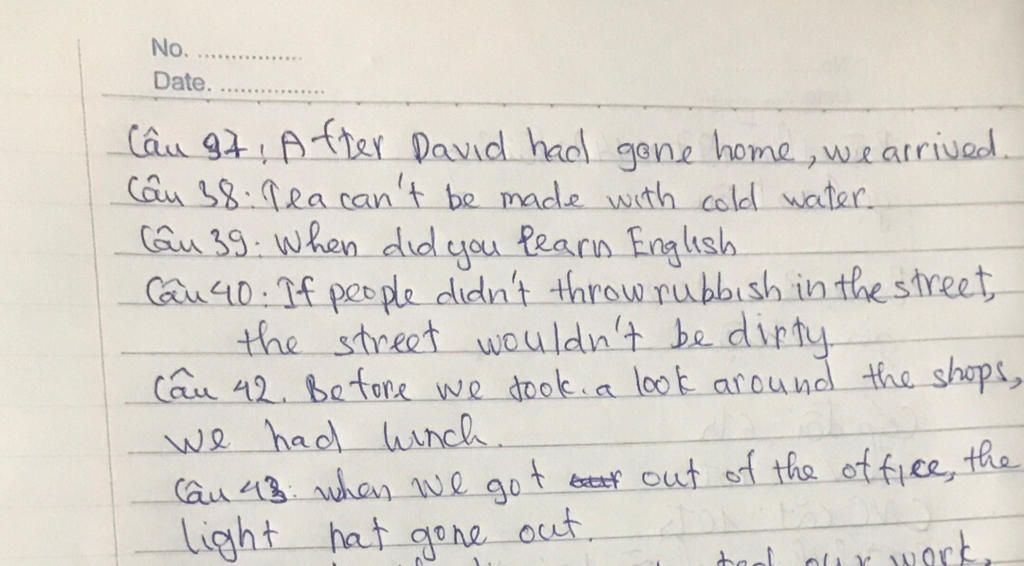 No. ................
Date. ................
Câu 37: After David had gone home, we arrived.
Câu 38: Tea can't be made with cold water.
Câu 39: When did you learn English
Câu 40: If people didn't throw rubbish in the street,
the street wouldn't be dirty.
Câu 42. Before we took a look around the shops,
we had lunch.
Câu 43: when we got out of the office, the
light hat gone out.
our work,